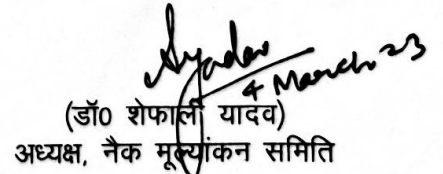 Syadav
4 March 23
(डॉ0 शेफाली यादव)
अध्यक्ष, नैक मूल्यांकन समिति